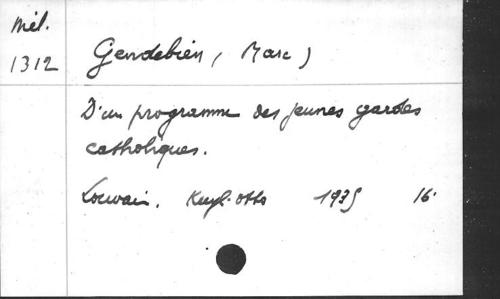 Mél.
1312
Gendebien, (Marc)
D'un programme des jeunes gardes
catholiques.
Louvain. Kuyl-Otto 1935 16°